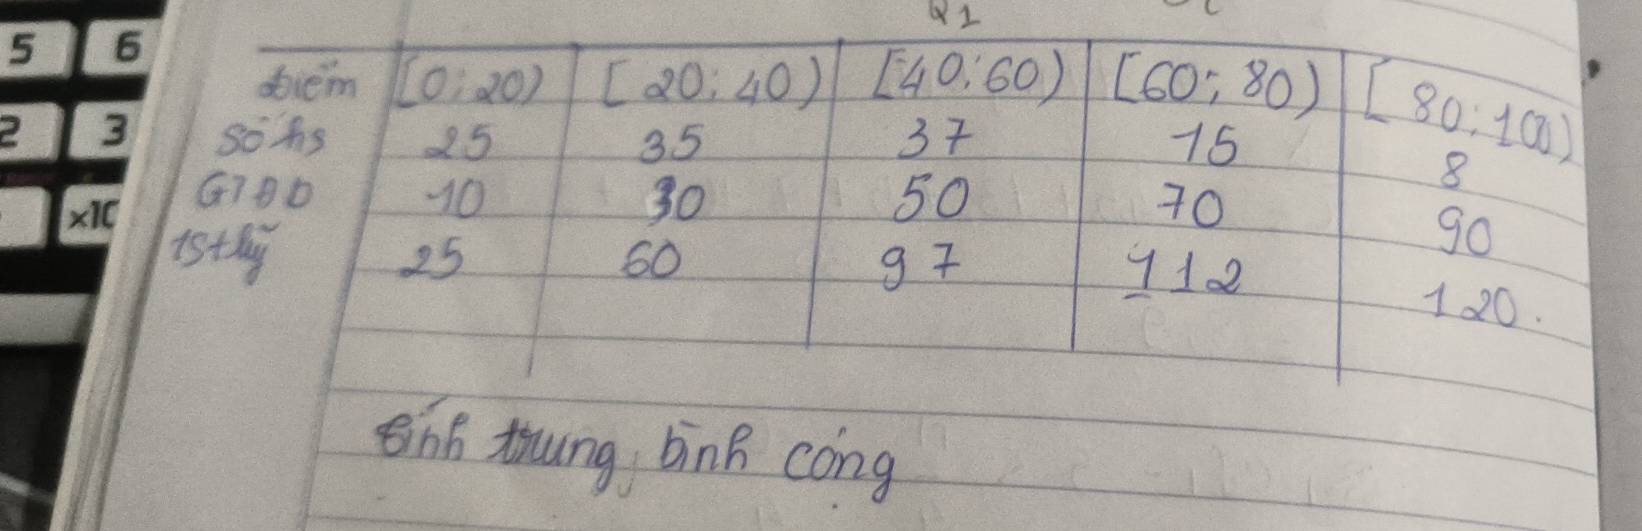 5 6
2 3
×10
Q1
điểm [0; 20) [20; 40) [40; 60) [60; 80) [80; 100)
số hs 25 35 37 15 8
GTĐD 10 30 50 70 90
TStlũy 25 60 97 112 120.
tính trung bình cộng